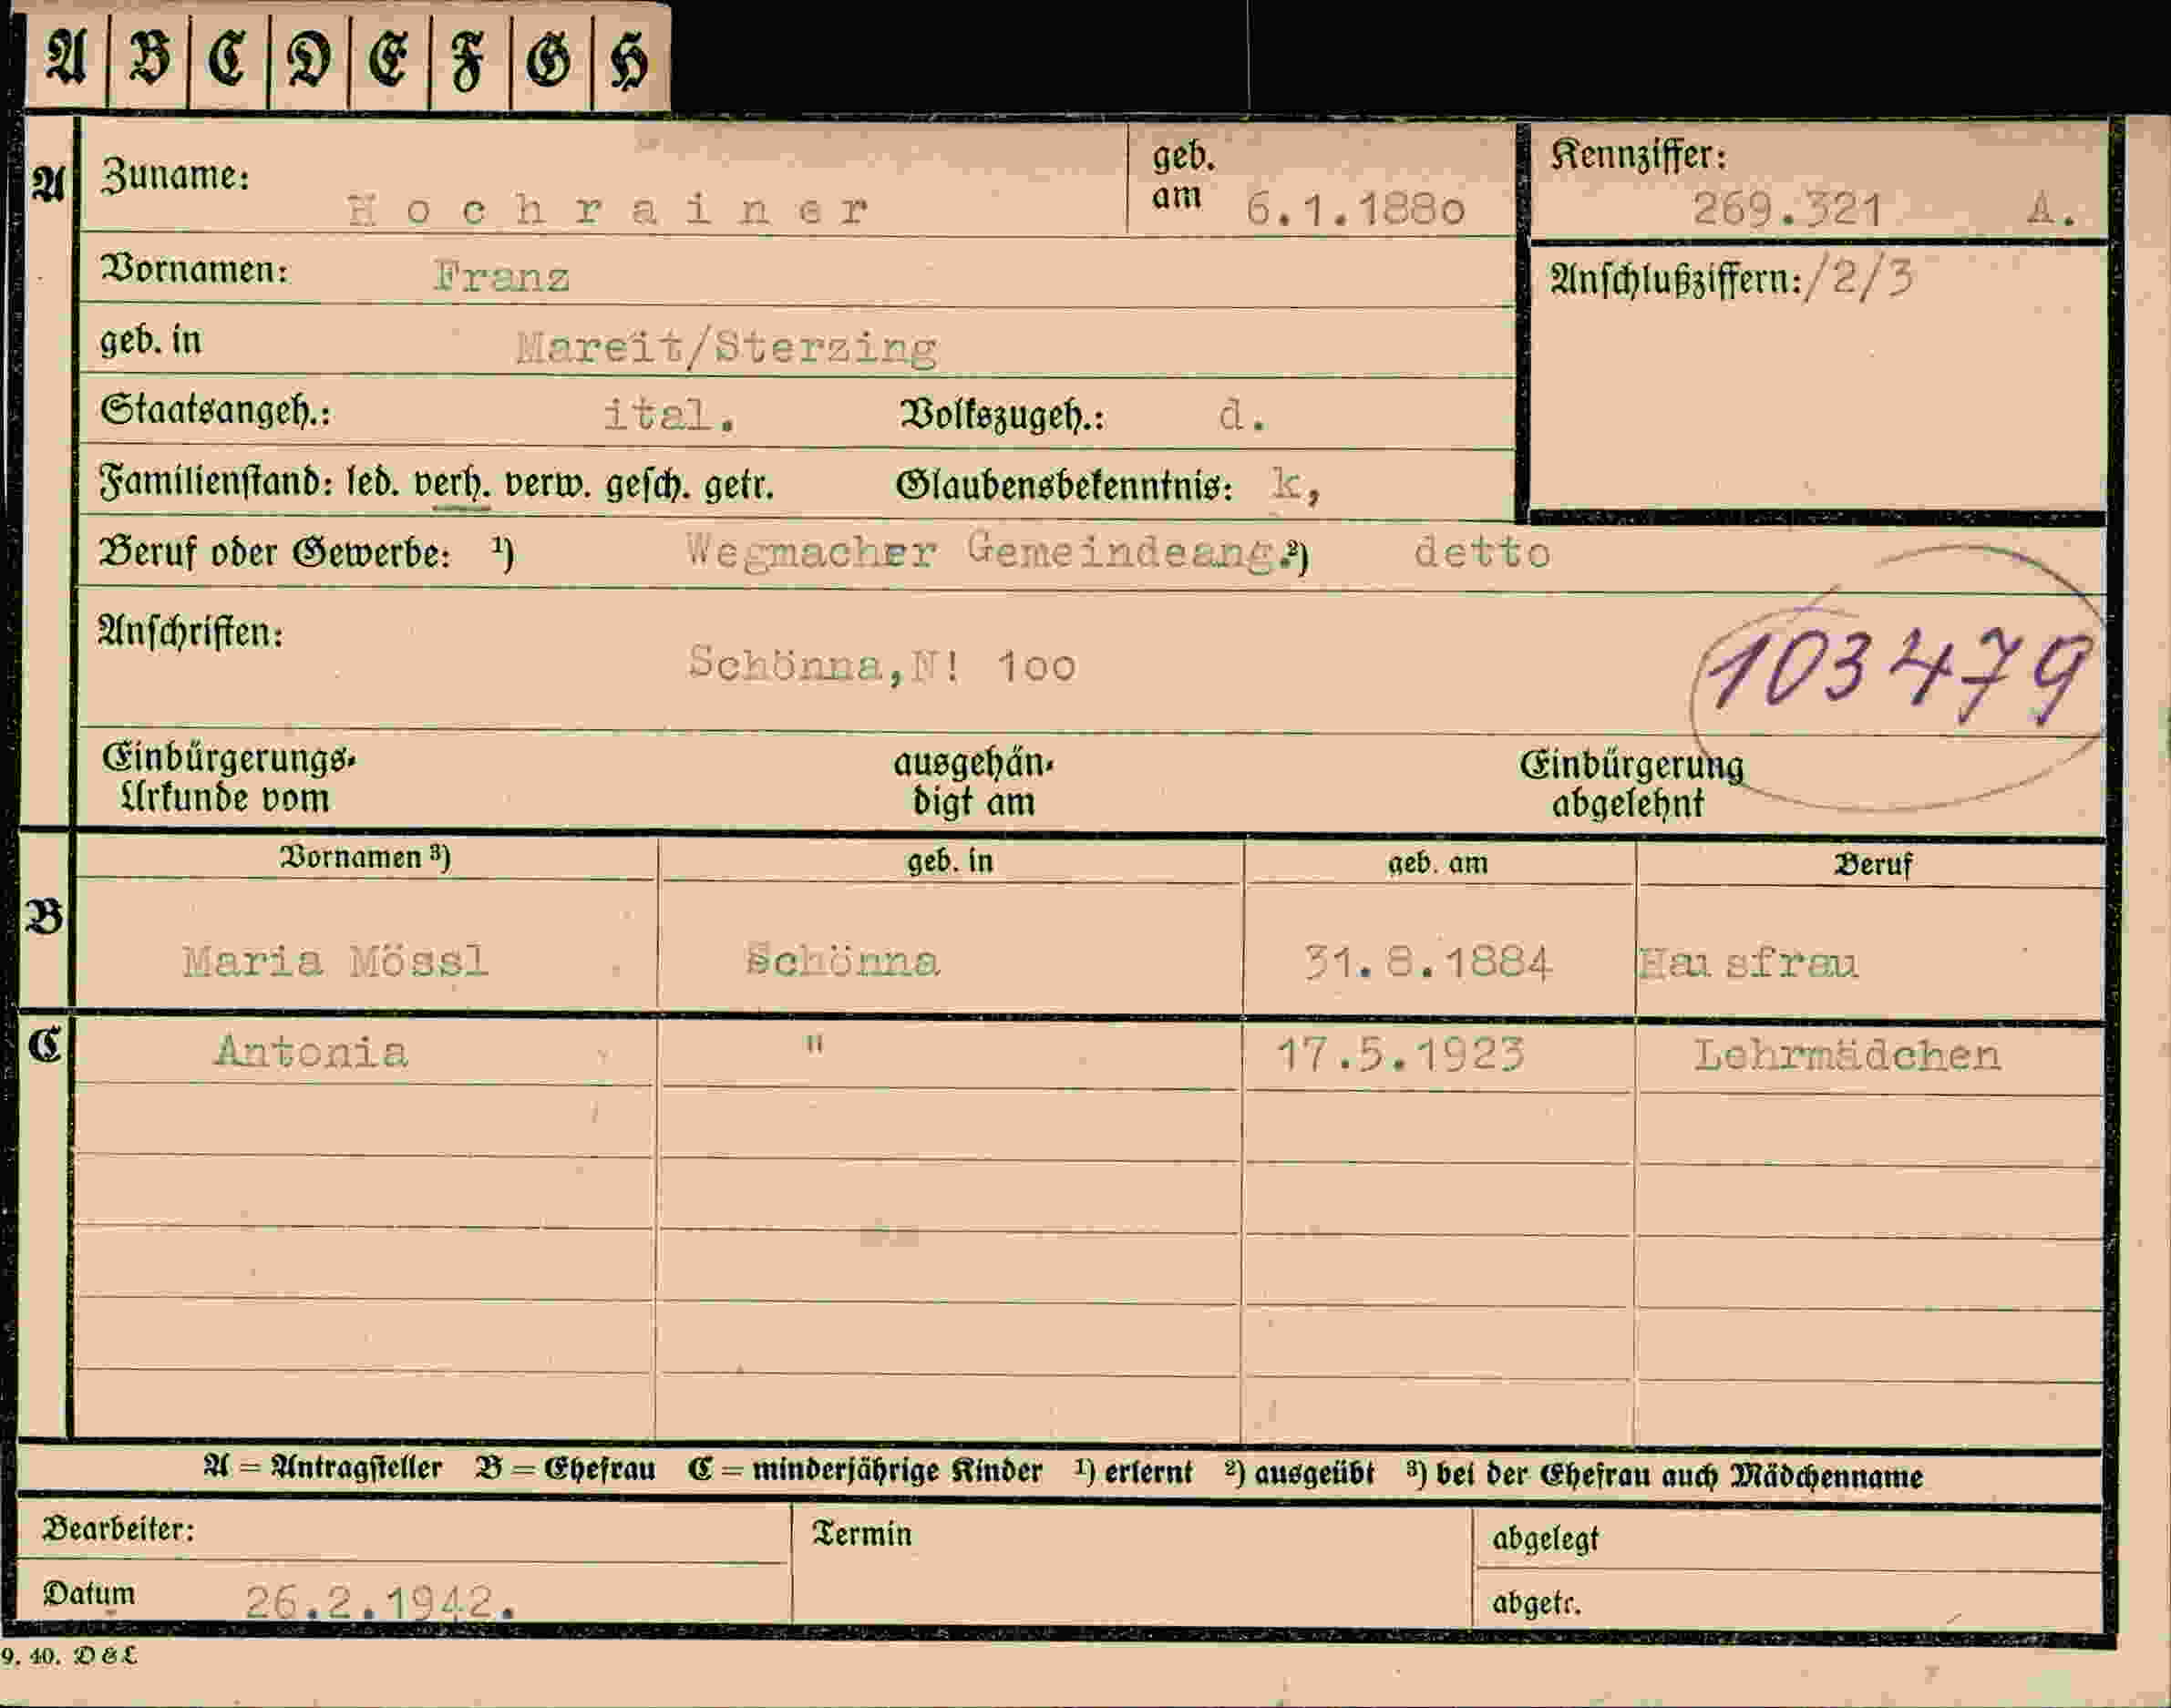 A B C D E F G H
A
Zuname: Hochrainer
geb. am 6.1.1880
Kennziffer: 269.321 A.
Vornamen: Franz
Anschlußziffern: /2/3
geb. in Mareit/Sterzing
Staatsangeh.: ital. Volkszugeh.: d.
Familienstand: led. verh. verw. gesch. getr. Glaubensbekenntnis: k,
Beruf oder Gewerbe: ¹) Wegmacher Gemeindeang. ²) detto
Anschriften: Schönna, N! 100
103479
Einbürgerungs-Urkunde vom ausgehän-digt am Einbürgerung abgelehnt
Vornamen ³) geb. in geb. am Beruf
B Maria Mössl Schönna 31.8.1884 Hausfrau
C Antonia " 17.5.1923 Lehrmädchen
A = Antragsteller B = Ehefrau C = minderjährige Kinder ¹) erlernt ²) ausgeübt ³) bei der Ehefrau auch Mädchenname
Bearbeiter: Termin abgelegt
Datum 26.2.1942. abgetr.
9. 40. D & L